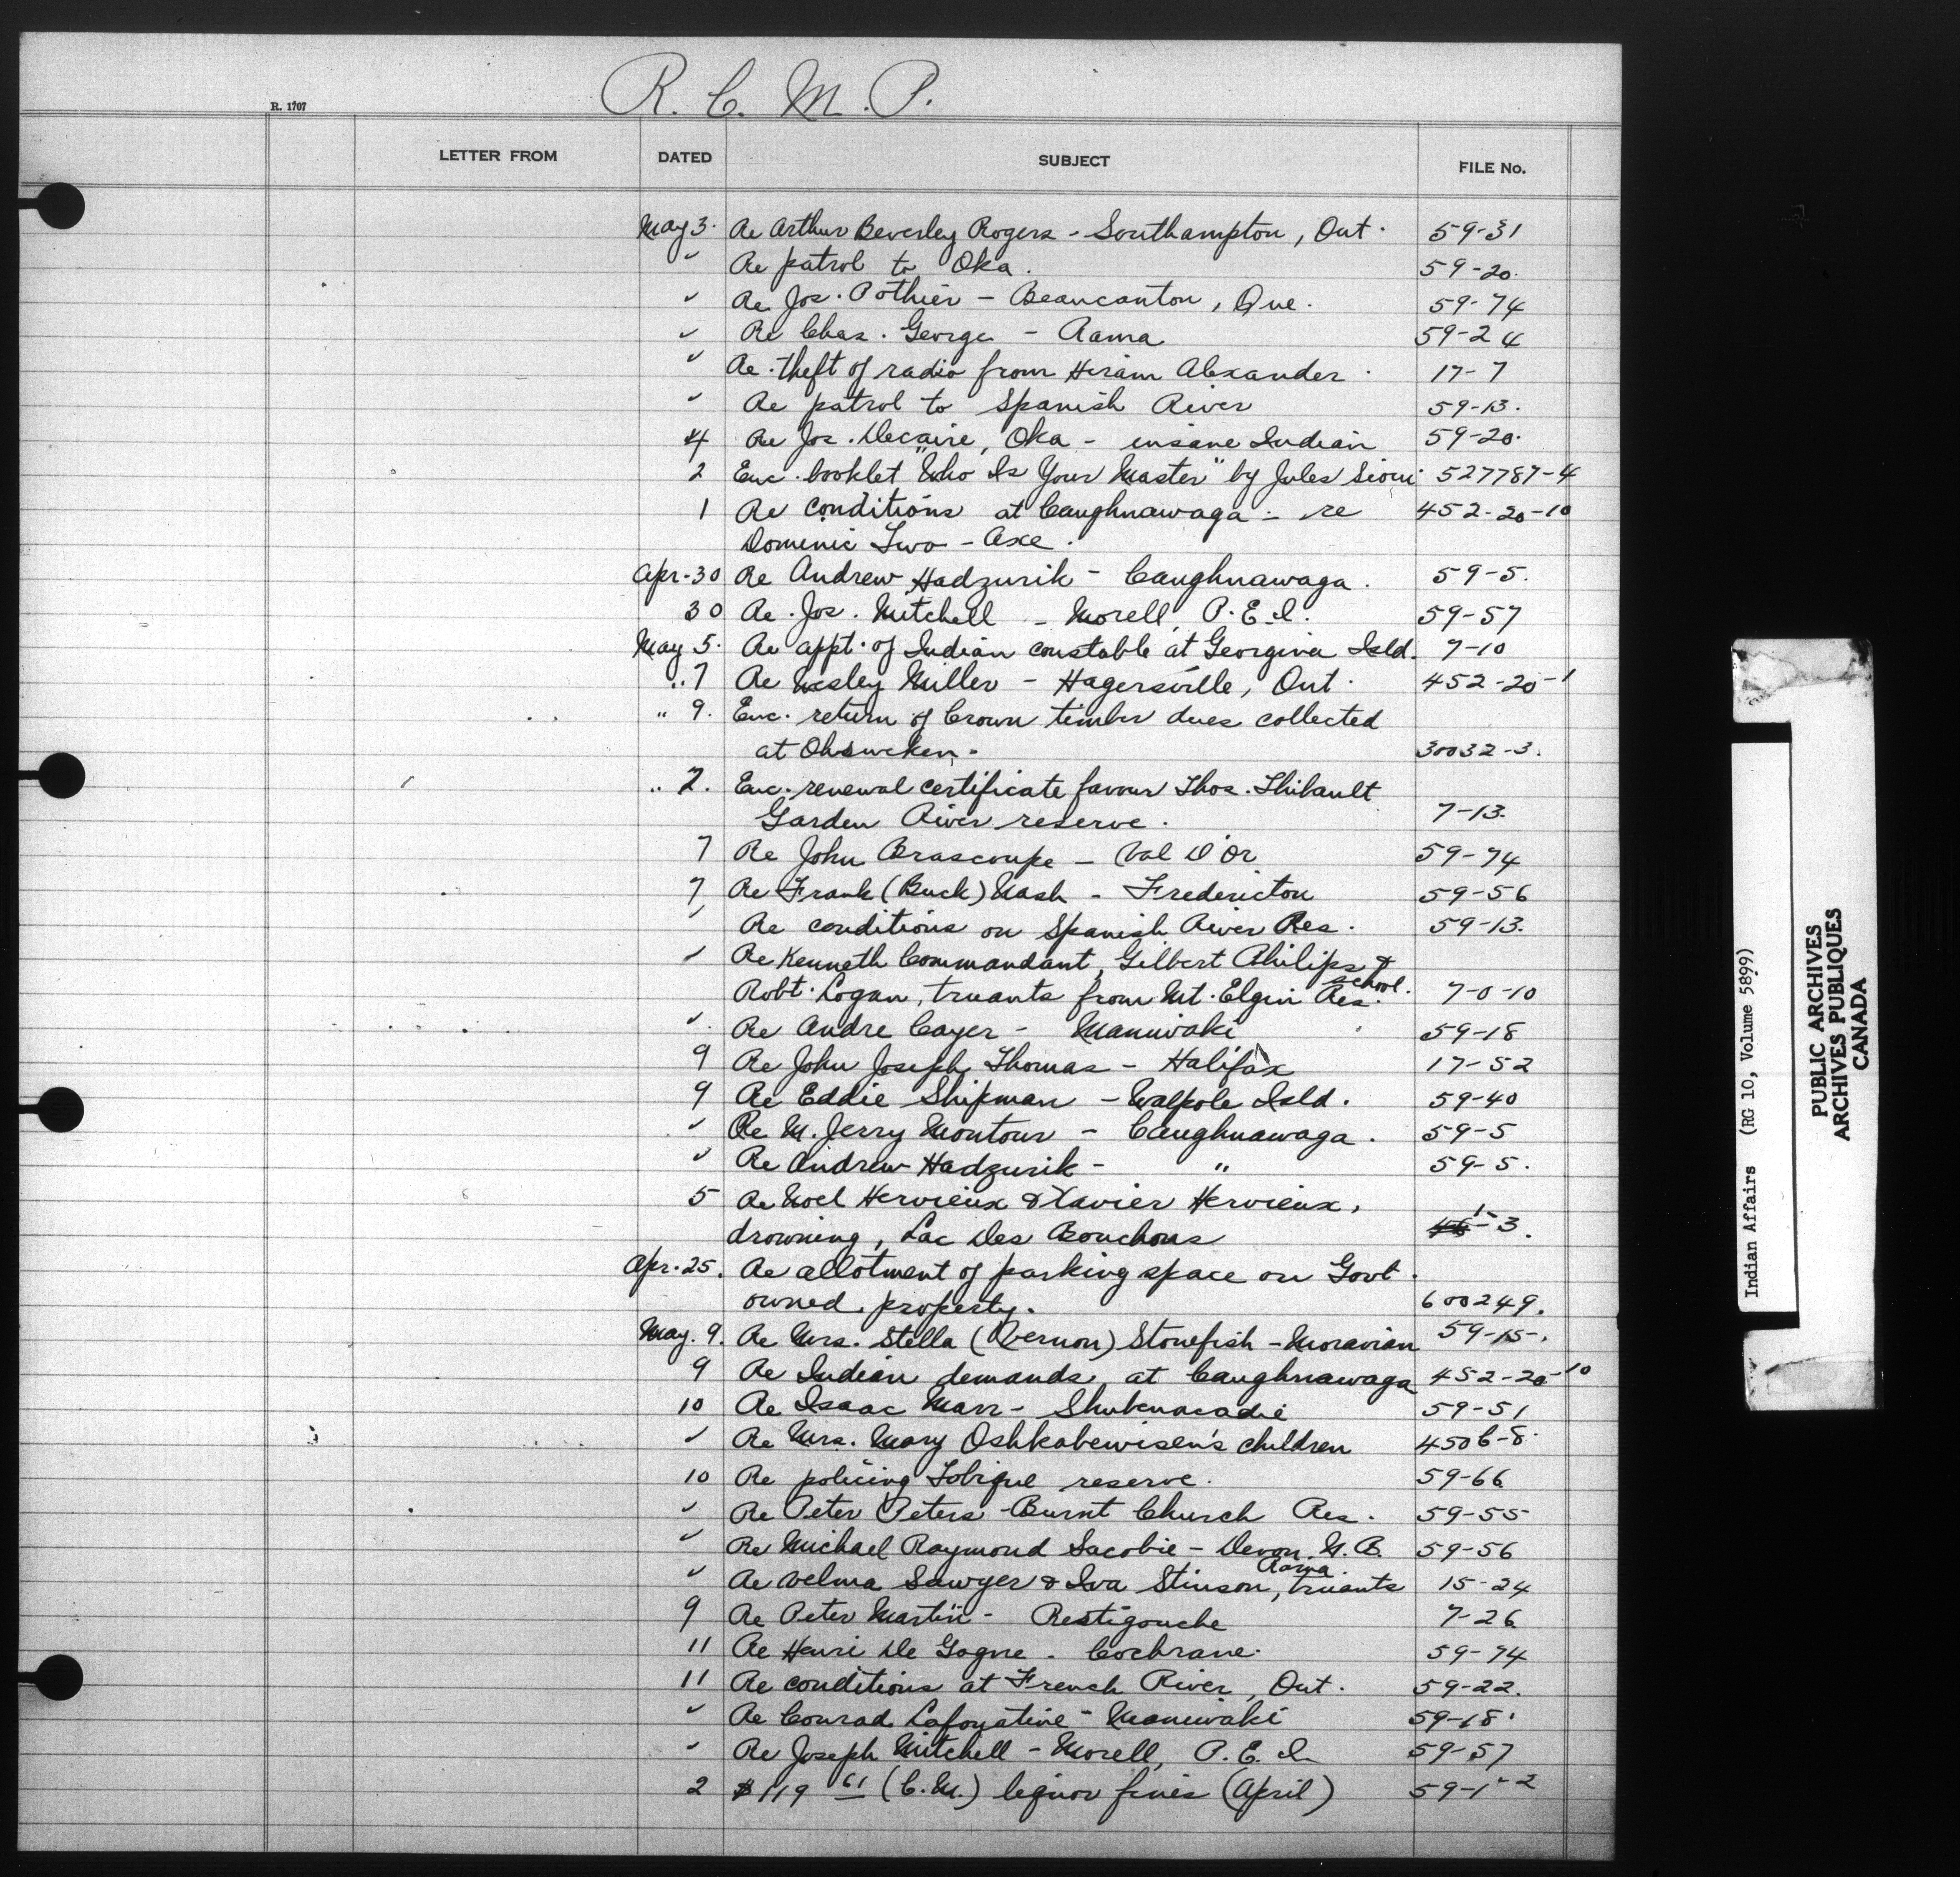 R. C. M. P.
R. 1707
LETTER FROM DATED SUBJECT FILE No.
May 3. Re Arthur Beverley Rogers - Southampton, Ont. 59-31
" Re patrol to Oka. 59-20.
" Re Jos. Pothier - Beaucanton, Que. 59-74
" Re Chas. George - Rama 59-24
" Re theft of radio from Hiram Alexander. 17-7
" Re patrol to Spanish River 59-13.
4 Re Jos. Decaire, Oka - insane Indian 59-20.
2 Enc. booklet "Who Is Your Master" by Jules Sioui 527787-4
1 Re conditions at Caughnawaga - re 452-20-10
Dominic Two-Axe.
Apr. 30 Re Andrew Hadzurik - Caughnawaga. 59-5.
30 Re Jos. Mitchell - Morell, P.E.I. 59-57
May 5. Re appt. of Indian constable at Georgina Isld. 7-10
" 7 Re Wesley Miller - Hagersville, Ont. 452-20-1
" 9. Enc. return of Crown timber dues collected
at Ohsweken. 30032-3.
" 7. Enc. renewal certificate favour Thos. Thibault
Garden River reserve. 7-13.
7 Re John Brascoupe - Val D'Or 59-74
7 Re Frank (Buck) Nash - Fredericton 59-56
" Re conditions on Spanish River Res. 59-13.
" Re Kenneth Commandant, Gilbert Philips &
Robt. Logan, truants from Mt. Elgin Res. school. 7-0-10
" Re Andre Cayer - Maniwaki 59-18
9 Re John Joseph Thomas - Halifax 17-52
9 Re Eddie Shipman - Walpole Isld. 59-40
" Re M. Jerry Montour - Caughnawaga. 59-5
" Re Andrew Hadzurik - " 59-5.
5 Re Noel Hervieux & Xavier Hervieux,
drowning, Lac Des Bouchons 1-3.
Apr. 25. Re allotment of parking space on Govt.
owned property. 600249.
May. 9. Re Mrs. Stella (Vernon) Stonefish - Moravian 59-15.
9 Re Indian demands at Caughnawaga 452-20-10
10 Re Isaac Marr - Shubenacadie 59-51
" Re Mrs. Mary Oshkabewisen's children 4506-8.
10 Re policing Tobique reserve. 59-66
" Re Peter Peters - Burnt Church Res. 59-55
" Re Michael Raymond Sacobie - Devon, N.B. 59-56
" Re Velma Sawyer & Iva Stinson, Rama. truants 15-24
9 Re Peter Martin - Restigouche 7-26
11 Re Henri De Gogne - Cochrane. 59-74
11 Re conditions at French River, Ont. 59-22.
" Re Conrad Lafoyative - Maniwaki 59-18.
" Re Joseph Mitchell - Morell, P.E.I. 59-57
2 $119 61 (C.M.) liquor fines (April) 59-1-2
Indian Affairs (RG 10, Volume 5899)
PUBLIC ARCHIVES
ARCHIVES PUBLIQUES
CANADA